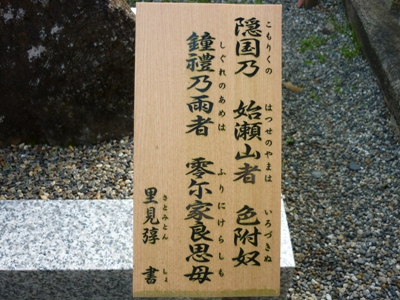 隠国乃 始瀬山者 色附奴
こもりくの はつせのやまは いろづきぬ
鐘禮乃雨者 零尓家良思母
しぐれのあめは ふりにけらしも
里見弴 書
さとみとん しょ